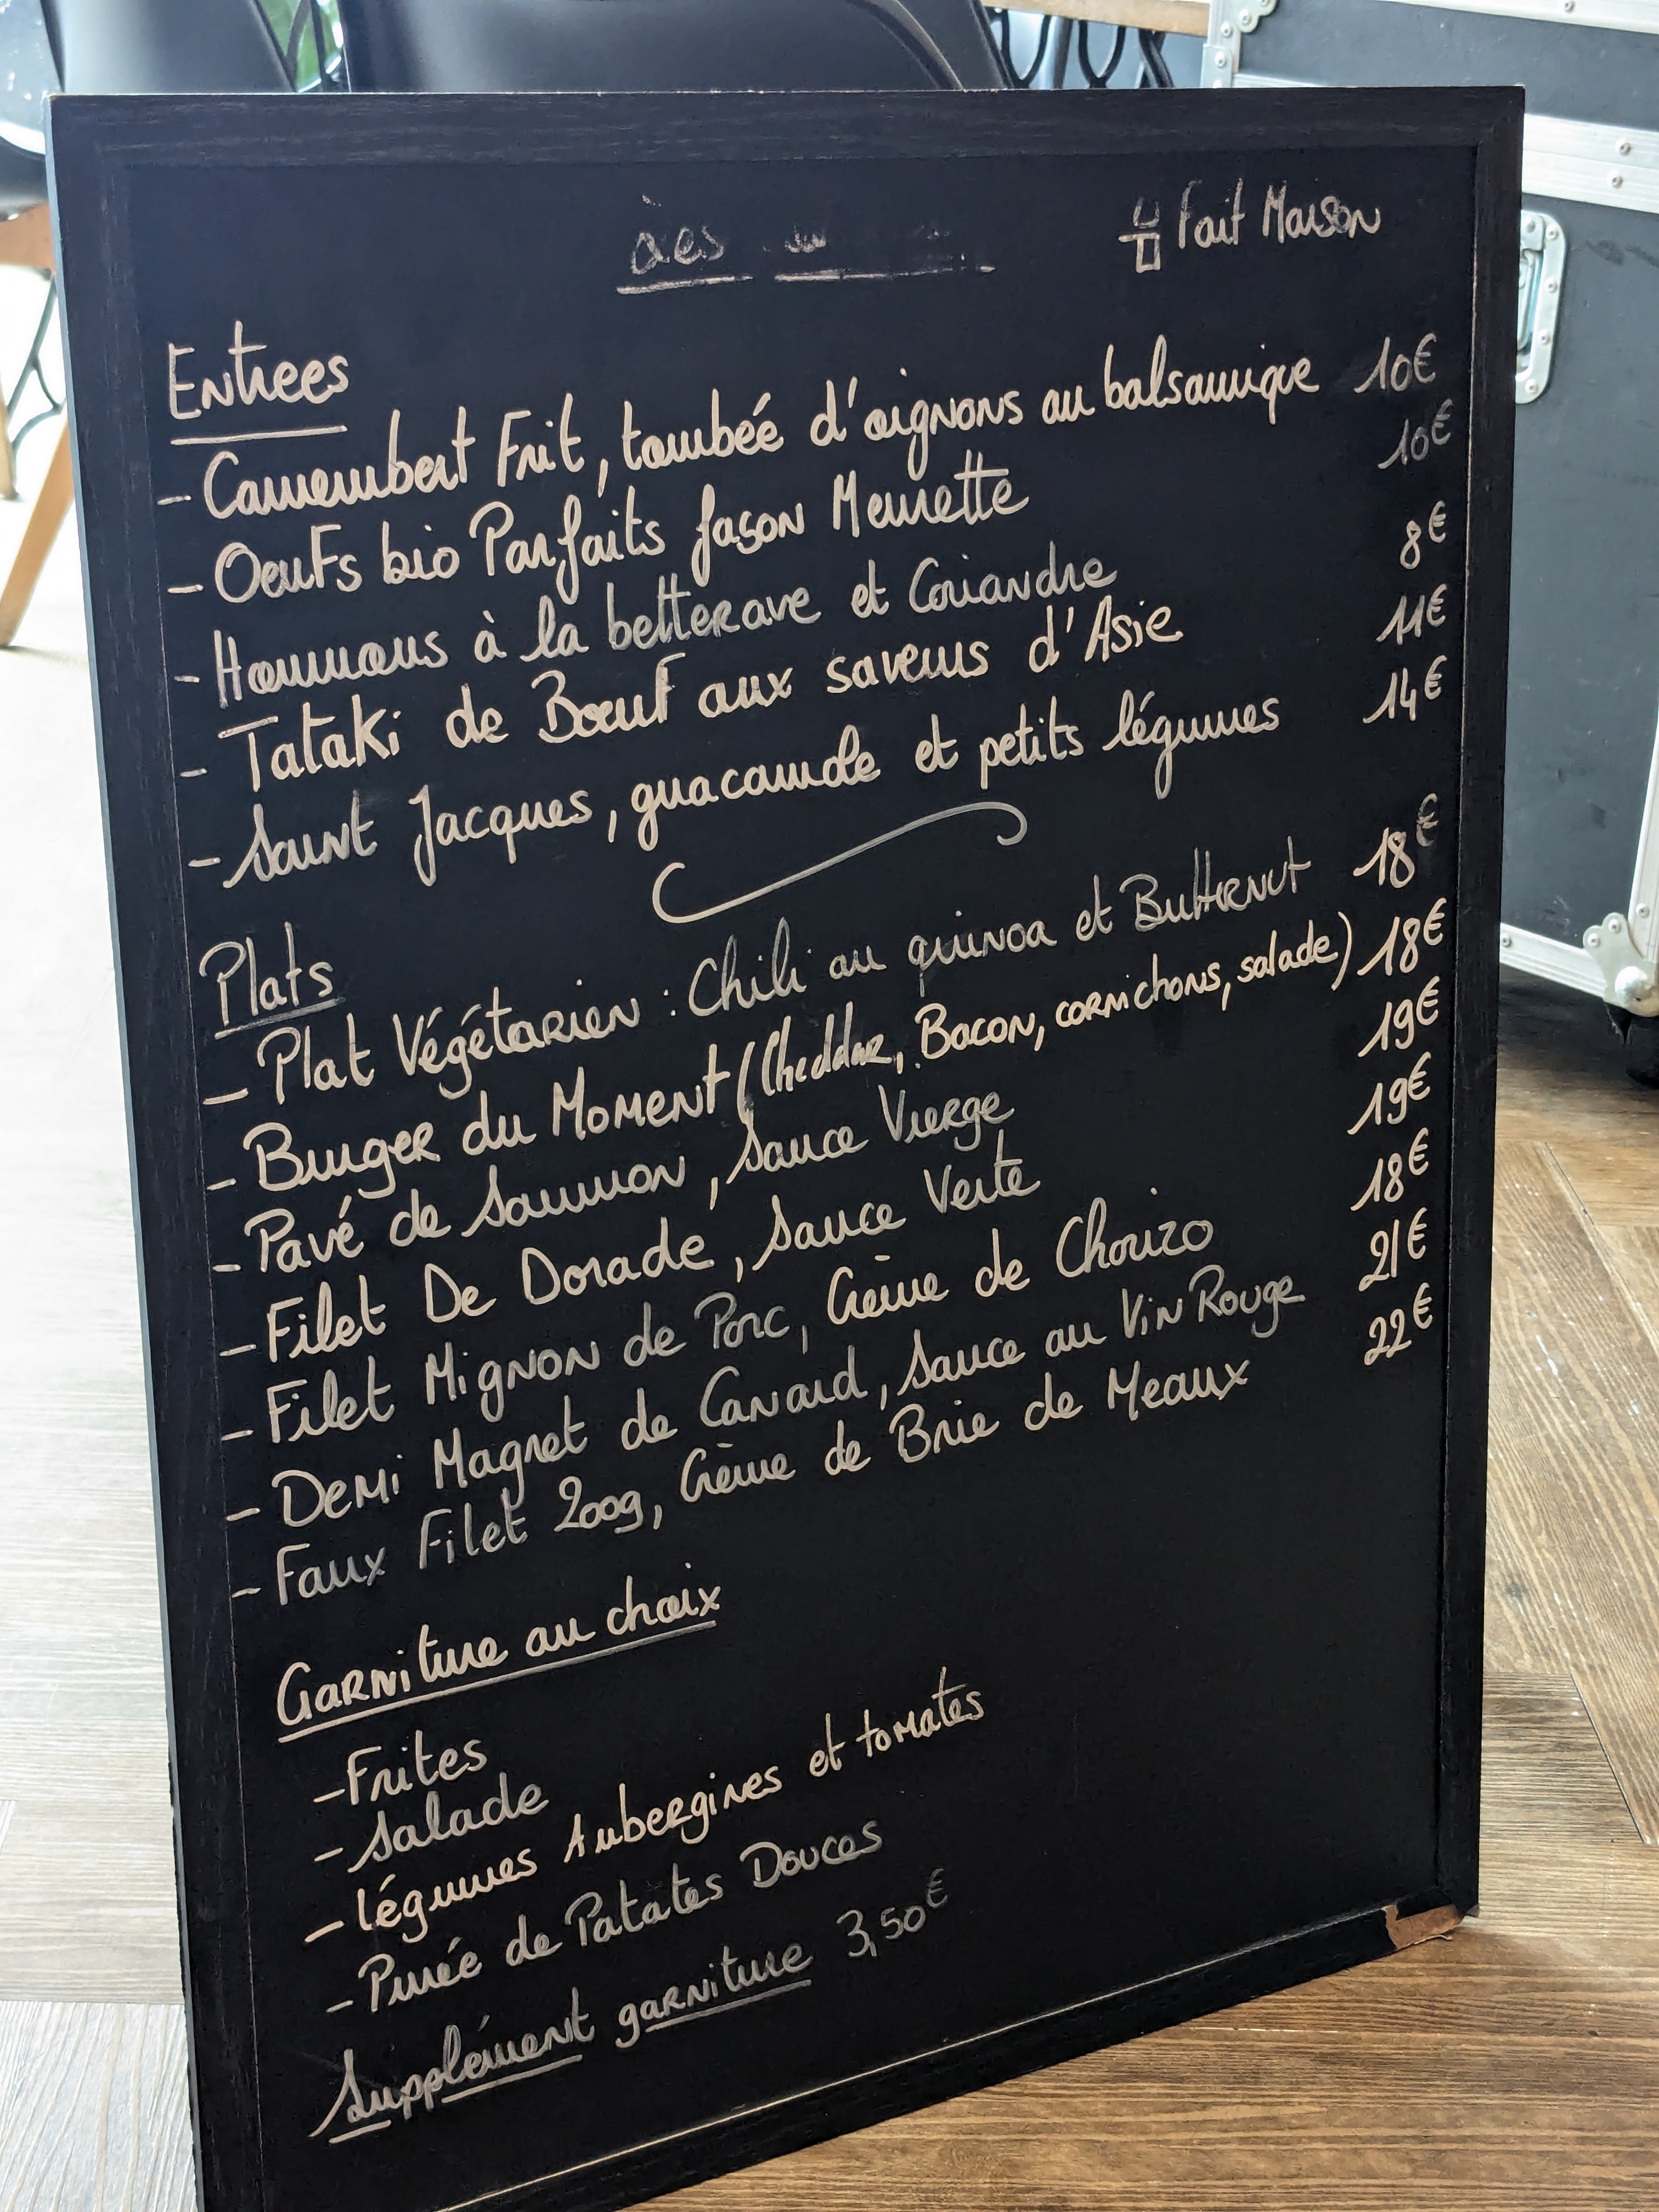 Fait Maison
Entrees
- Camembert Frit, tombée d'oignons au balsamique 10€
- Oeufs bio Parfaits façon Meurette 10€
- Houmous à la betterave et Coriandre 8€
- Tataki de Bœuf aux saveurs d'Asie 11€
- Saint Jacques, guacamole et petits légumes 14€
Plats
- Plat Végétarien : Chili au quinoa et Butternut 18€
- Burger du Moment (Cheddar, Bacon, cornichons, salade) 18€
- Pavé de Saumon, Sauce Vierge 19€
- Filet De Dorade, Sauce Verte 19€
- Filet Mignon de Porc, Crème de Chorizo 18€
- Demi Magret de Canard, Sauce au Vin Rouge 21€
- Faux Filet 200g, Crème de Brie de Meaux 22€
Garniture au choix
- Frites
- Salade
- légumes Aubergines et tomates
- Purée de Patates Douces
Supplément garniture 3,50€